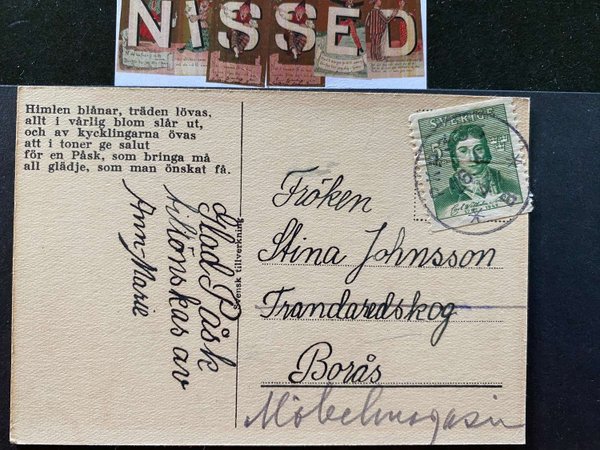 NISSED
Himlen blånar, träden lövas,
allt i vårlig blom slår ut,
och av kycklingarna övas
att i toner ge salut
för en Påsk, som bringa må
all glädje, som man önskat få.
Glad Påsk
tillönskas av
Ann-Marie
Svensk tillverkning
SVERIGE
5
Fröken
Stina Johnsson
Trandaredskog
Borås
Möbelmagasin